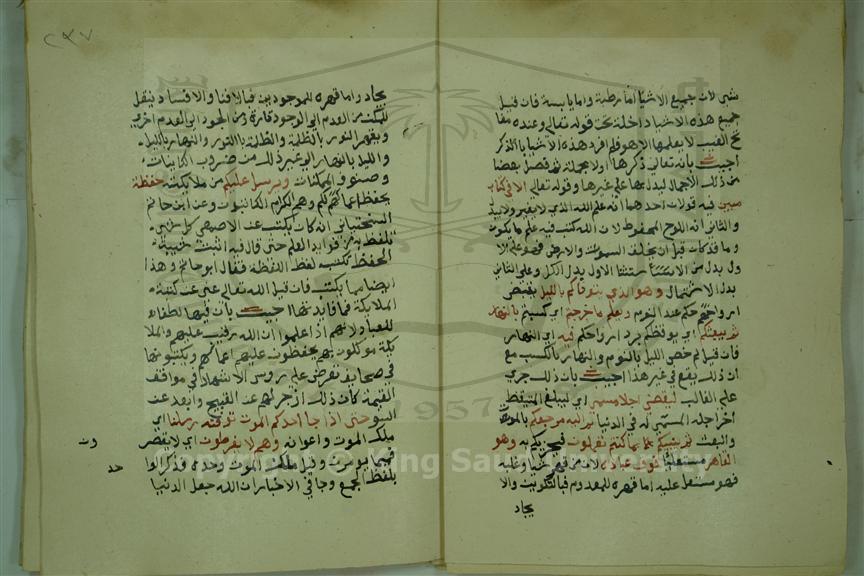 شيء لان جميع الاشيا اما رطبة واما يابسة فان قيل
جميع هذه الاشيا داخلة تحت قوله تعالى وعنده مفا
تح الغيب لا يعلمها الا هو فلم افرد هذه الاشيا بالذكر
أجيب بانه تعالى ذكرها اولا مجملة ثم فصل بعضا
من ذلك الاجمال ليدل بها على غيرها وقوله تعالى الا في كتاب
مبين فيه قولان احدهما انه علم الله الذي لا يغير ولا يبدل
والثاني انه اللوح المحفوظ لان الله كتب فيه علم ما يكون
وما قد كان قبل ان يخلف السموات والارض فهو على الا
ول بدل من الاستثناء الاول بدل الكل وعلى الثاني
بدل الاشتمال وهو الذي يتوفاكم بالليل يقبض
ارواحكم عند النوم ويعلم ما جرحتم اي كسبتم بالنهار
ثم يبعثكم اي يوقظكم برد ارواحكم فيه اي النهار
فان قيل لم خص الليل بالنوم والنهار بالكسب مع
ان ذلك يقع في غير هذا أجيب بان ذلك جرى
على الغالب ليقضى اجل مسمى اي ليبلغ المتيقظ
آخر اجله المسمى له في الدنيا ثم اليه مرجعكم بالموت
والبعث ثم ينبئكم بما كنتم تعملون فيجزيكم به وهو
القاهر مستعليا فوق عباده لان من قهر شيا وغلبه
فهو مستعل عليه اما قهره للمعدوم فبالتكوين والا
يجاد
٢٣٧
يجاد واما قهره للموجود بين فبالافنا والافساد ينقل
الممكن من العدم الى الوجود تارة ومن الوجود الى العدم اخرى
ويقهر النور بالظلمة والظلمة بالنور والنهار بالليل
والليل بالنهار الى غير ذلك من ضروب الكاينات
وصنوف الممكنات ويرسل عليكم من ملايكته حفظة
يحفظ اعمالكم وهم الكرام الكاتبون وعن ابي حاتم
السجستاني انه كان يكتب عن الاصمعي كل شيء
تلفظ به من فوايد العلم حتى قال فيه انت شبيه
الحفظة تكتب لفظ اللفظة فقال ابو حاتم وهذا
ايضا مما يكتب فان قيل الله تعالى غني عن كتبة
الملايكة فما فايدتها أجيب بان فيها لطفا
للعباد لانهم اذا علموا ان الله رقيب عليهم والملا
يكة موكلون بهم يحفظون عليهم اعمالهم ويكتبونها
في صحايف تعرض على رؤس الاشهاد في مواقف
القيمة كان ذلك ازجر لهم عن القبيح وابعد عن
السو حتى اذا جا احدكم الموت توفته رسلنا اي
ملك الموت واعوانه وهم لا يفرطون اي لا يقصرون
فيما يومرون وقيل ملك الموت وحده فذكر الواحد
بلفظ الجمع وجا في الاخبار ان الله جعل الدنيا